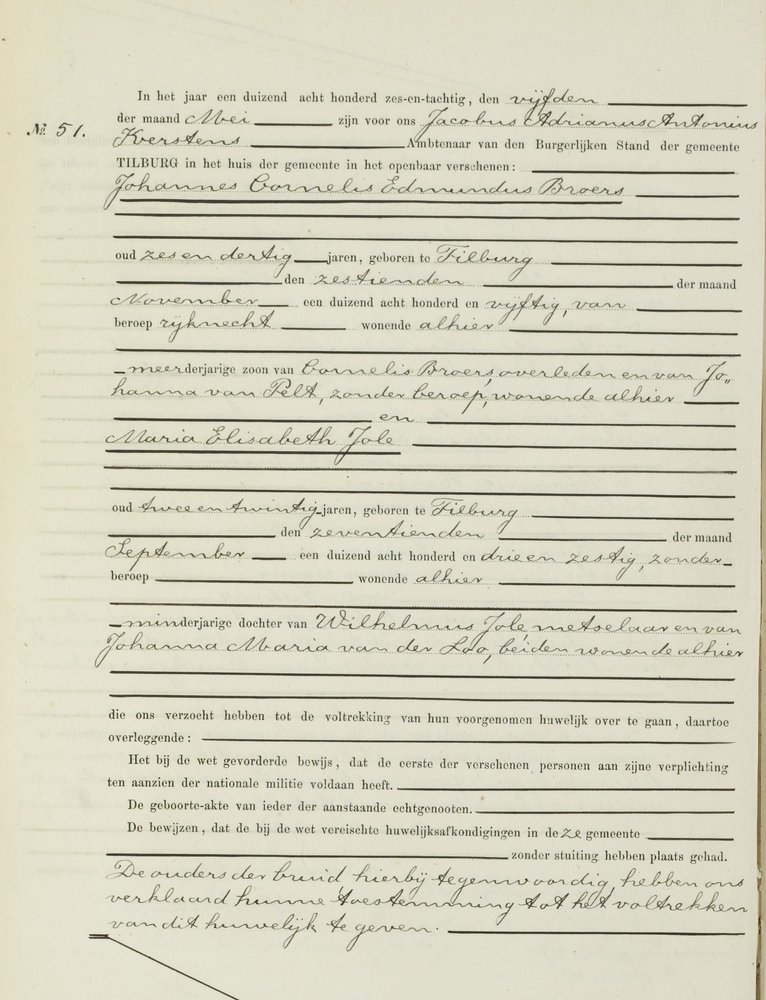 In het jaar een duizend acht honderd zes-en-tachtig, den vijfden
der maand Mei zijn voor ons Jacobus Adrianus Antonius
№ 51.
Kerstens Ambtenaar van den Burgerlijken Stand der gemeente
TILBURG in het huis der gemeente in het openbaar verschenen:
Johannes Cornelis Edmundus Broers
oud zes en dertig jaren, geboren te Tilburg
den zestienden der maand
November een duizend acht honderd en vijftig, van
beroep rijknecht wonende alhier
meerderjarige zoon van Cornelis Broers, overleden en van Jo„
hanna van Pelt, zonder beroep, wonende alhier
en
Maria Elisabeth Jole
oud twee en twintig jaren, geboren te Tilburg
den zeventienden der maand
September een duizend acht honderd en drie en zestig, zonder
beroep wonende alhier
minderjarige dochter van Wilhelmus Jole, metselaar en van
Johanna Maria van der Loo, beiden wonende alhier
die ons verzocht hebben tot de voltrekking van hun voorgenomen huwelijk over te gaan, daartoe
overleggende:
Het bij de wet gevorderde bewijs, dat de eerste der verschenen personen aan zijne verplichting
ten aanzien der nationale militie voldaan heeft.
De geboorte-akte van ieder der aanstaande echtgenooten.
De bewijzen, dat de bij de wet vereischte huwelijksafkondigingen in deze gemeente
zonder stuiting hebben plaats gehad.
De ouders der bruid hierbij tegenwoordig, hebben ons
verklaard hunne toestemming tot het voltrekken
van dit huwelijk te geven.